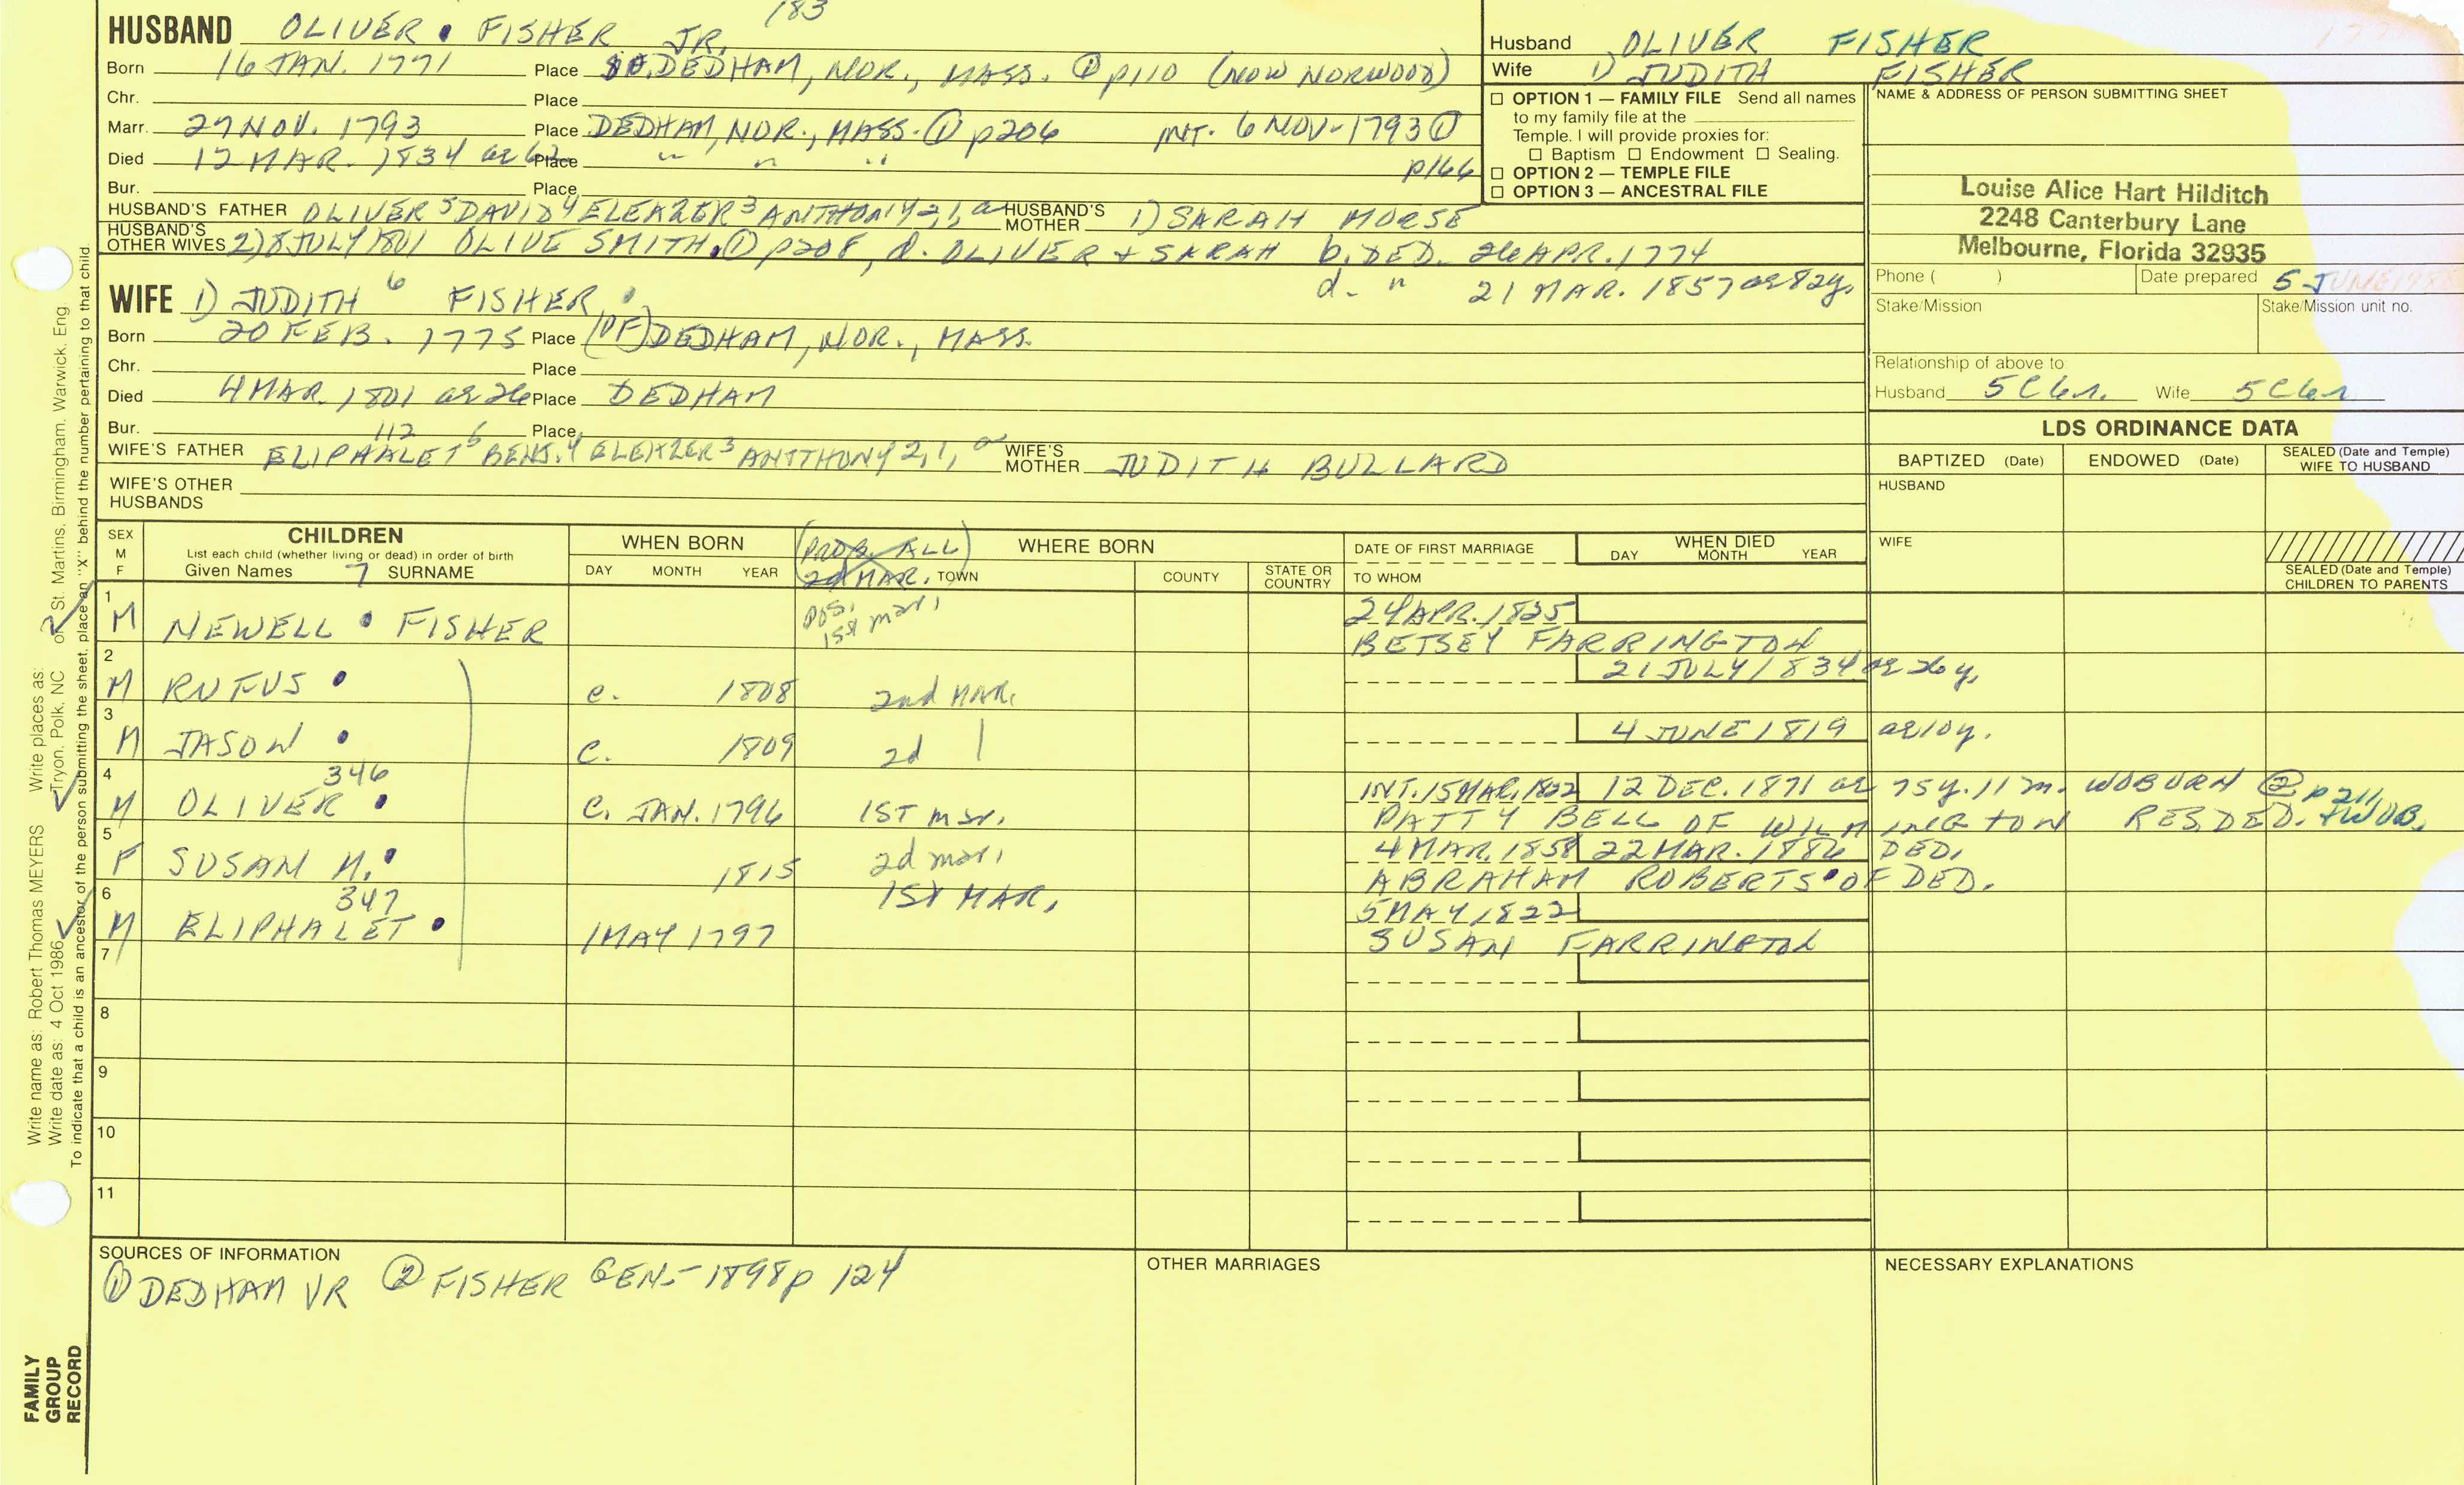 183
HUSBAND OLIVER FISHER JR.
Born 16 JAN. 1771 Place DEDHAM, NOR., MASS. ① p110 (NOW NORWOOD)
Chr. Place
Marr. 27 NOV. 1793 Place DEDHAM, NOR., MASS. ① p206 INT. 6 NOV-1793 ①
p166
Died 12 MAR. 1834 ae 62 Place " " "
Bur. Place
HUSBAND'S FATHER OLIVER 5 DAVID 4 ELEAZER 3 ANTHONY 2,1, a HUSBAND'S MOTHER 1) SARAH MORSE
HUSBAND'S OTHER WIVES 2) 8 JULY 1801 OLIVE SMITH. ① p208, d. OLIVER + SARAH b. DED. 26 APR. 1774
d. " 21 MAR. 1857 ae 82y.
WIFE 1) JUDITH 6 FISHER
Born 20 FEB. 1775 Place (OF) DEDHAM, NOR., MASS.
Chr. Place
Died 4 MAR. 1801 ae 26 Place DEDHAM
Bur. Place
112
WIFE'S FATHER ELIPHALET 5 BENJ. 4 ELEAZER 3 ANTTHONY 2,1, a WIFE'S MOTHER JUDITH BULLARD
WIFE'S OTHER HUSBANDS
Husband OLIVER FISHER
Wife 1) JUDITH FISHER
☐ OPTION 1 — FAMILY FILE Send all names
to my family file at the
Temple. I will provide proxies for:
☐ Baptism ☐ Endowment ☐ Sealing.
☐ OPTION 2 — TEMPLE FILE
☐ OPTION 3 — ANCESTRAL FILE
NAME & ADDRESS OF PERSON SUBMITTING SHEET
Louise Alice Hart Hilditch
2248 Canterbury Lane
Melbourne, Florida 32935
Phone ( ) Date prepared 5 JUNE 198
Stake/Mission Stake/Mission unit no.
Relationship of above to:
Husband 5C6r. Wife 5C6r
LDS ORDINANCE DATA
BAPTIZED (Date) ENDOWED (Date) SEALED (Date and Temple) WIFE TO HUSBAND
HUSBAND
WIFE
SEALED (Date and Temple) CHILDREN TO PARENTS
SEX M F
CHILDREN
List each child (whether living or dead) in order of birth
Given Names 7 SURNAME
WHEN BORN
DAY MONTH YEAR
(PROB. ALL)
2d MAR.
WHERE BORN
TOWN COUNTY STATE OR COUNTRY
DATE OF FIRST MARRIAGE
TO WHOM
WHEN DIED
DAY MONTH YEAR
1 M NEWELL FISHER pos. 1st mar. 24 APR. 1825
BETSEY FARRINGTON
2 M RUFUS c. 1808 2nd MAR. 21 JULY 1834 ae 26 y.
3 M JASON c. 1809 2d 4 JUNE 1819 ae 10 y.
346
4 M OLIVER C. JAN. 1796 1ST mar. INT. 15 MAR. 1822 12 DEC. 1871 ae 75 y. 11 m. WOBURN ② p 211
PATTY BELL OF WILMINGTON RES. DED. + WOB.
5 F SUSAN M. 1815 2d mar. 4 MAR. 1858 22 MAR. 1886 DED.
ABRAHAM ROBERTS OF DED.
347
6 M ELIPHALET 1 MAY 1797 1ST MAR. 5 MAY 1822
SUSAN FARRINGTON
7
8
9
10
11
SOURCES OF INFORMATION
① DEDHAM VR ② FISHER GEN.-1898 p 124
OTHER MARRIAGES
NECESSARY EXPLANATIONS
Write name as: Robert Thomas MEYERS Write places as: Tryon, Polk, NC or St. Martins, Birmingham, Warwick, Eng
Write date as: 4 Oct 1986
To indicate that a child is an ancestor of the person submitting the sheet, place an "X" behind the number pertaining to that child.
FAMILY
GROUP
RECORD